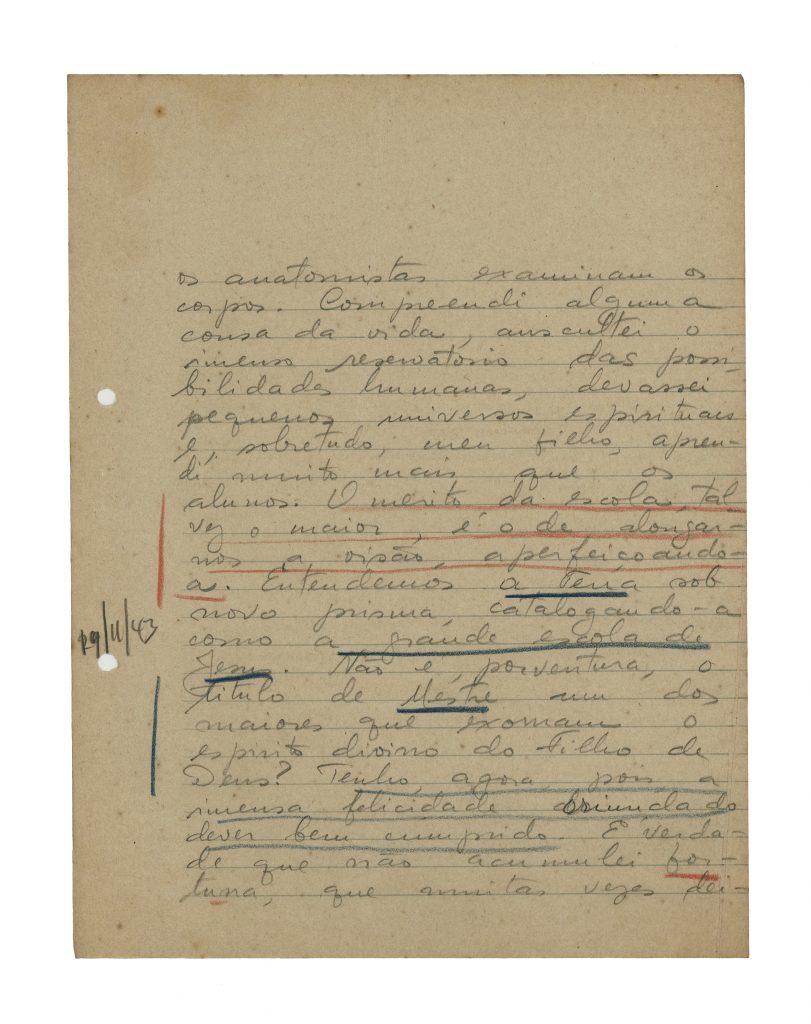 os anatomistas examinam os
corpos. Compreendi alguma
cousa da vida, auscultei o
imenso reservatorio das possi-
bilidades humanas, devassei
pequenos universos espirituais
e, sobretudo, meu filho, apren-
di muito mais que os
alunos. O merito da escola, tal
vez o maior, é o de alongar-
nos a visão, aperfeiçoando-
a. Entendemos a Terra sob
novo prisma, catalogando-a
19/11/43
como a grande escola de
Jesus. Não é, porventura, o
titulo de Mestre um dos
maiores que exornam o
espirito divino do Filho de
Deus? Tenho, agora, pois, a
imensa felicidade oriunda do
dever bem cumprido. É verda-
de que não acumulei for-
tuna, que muitas vezes dei-